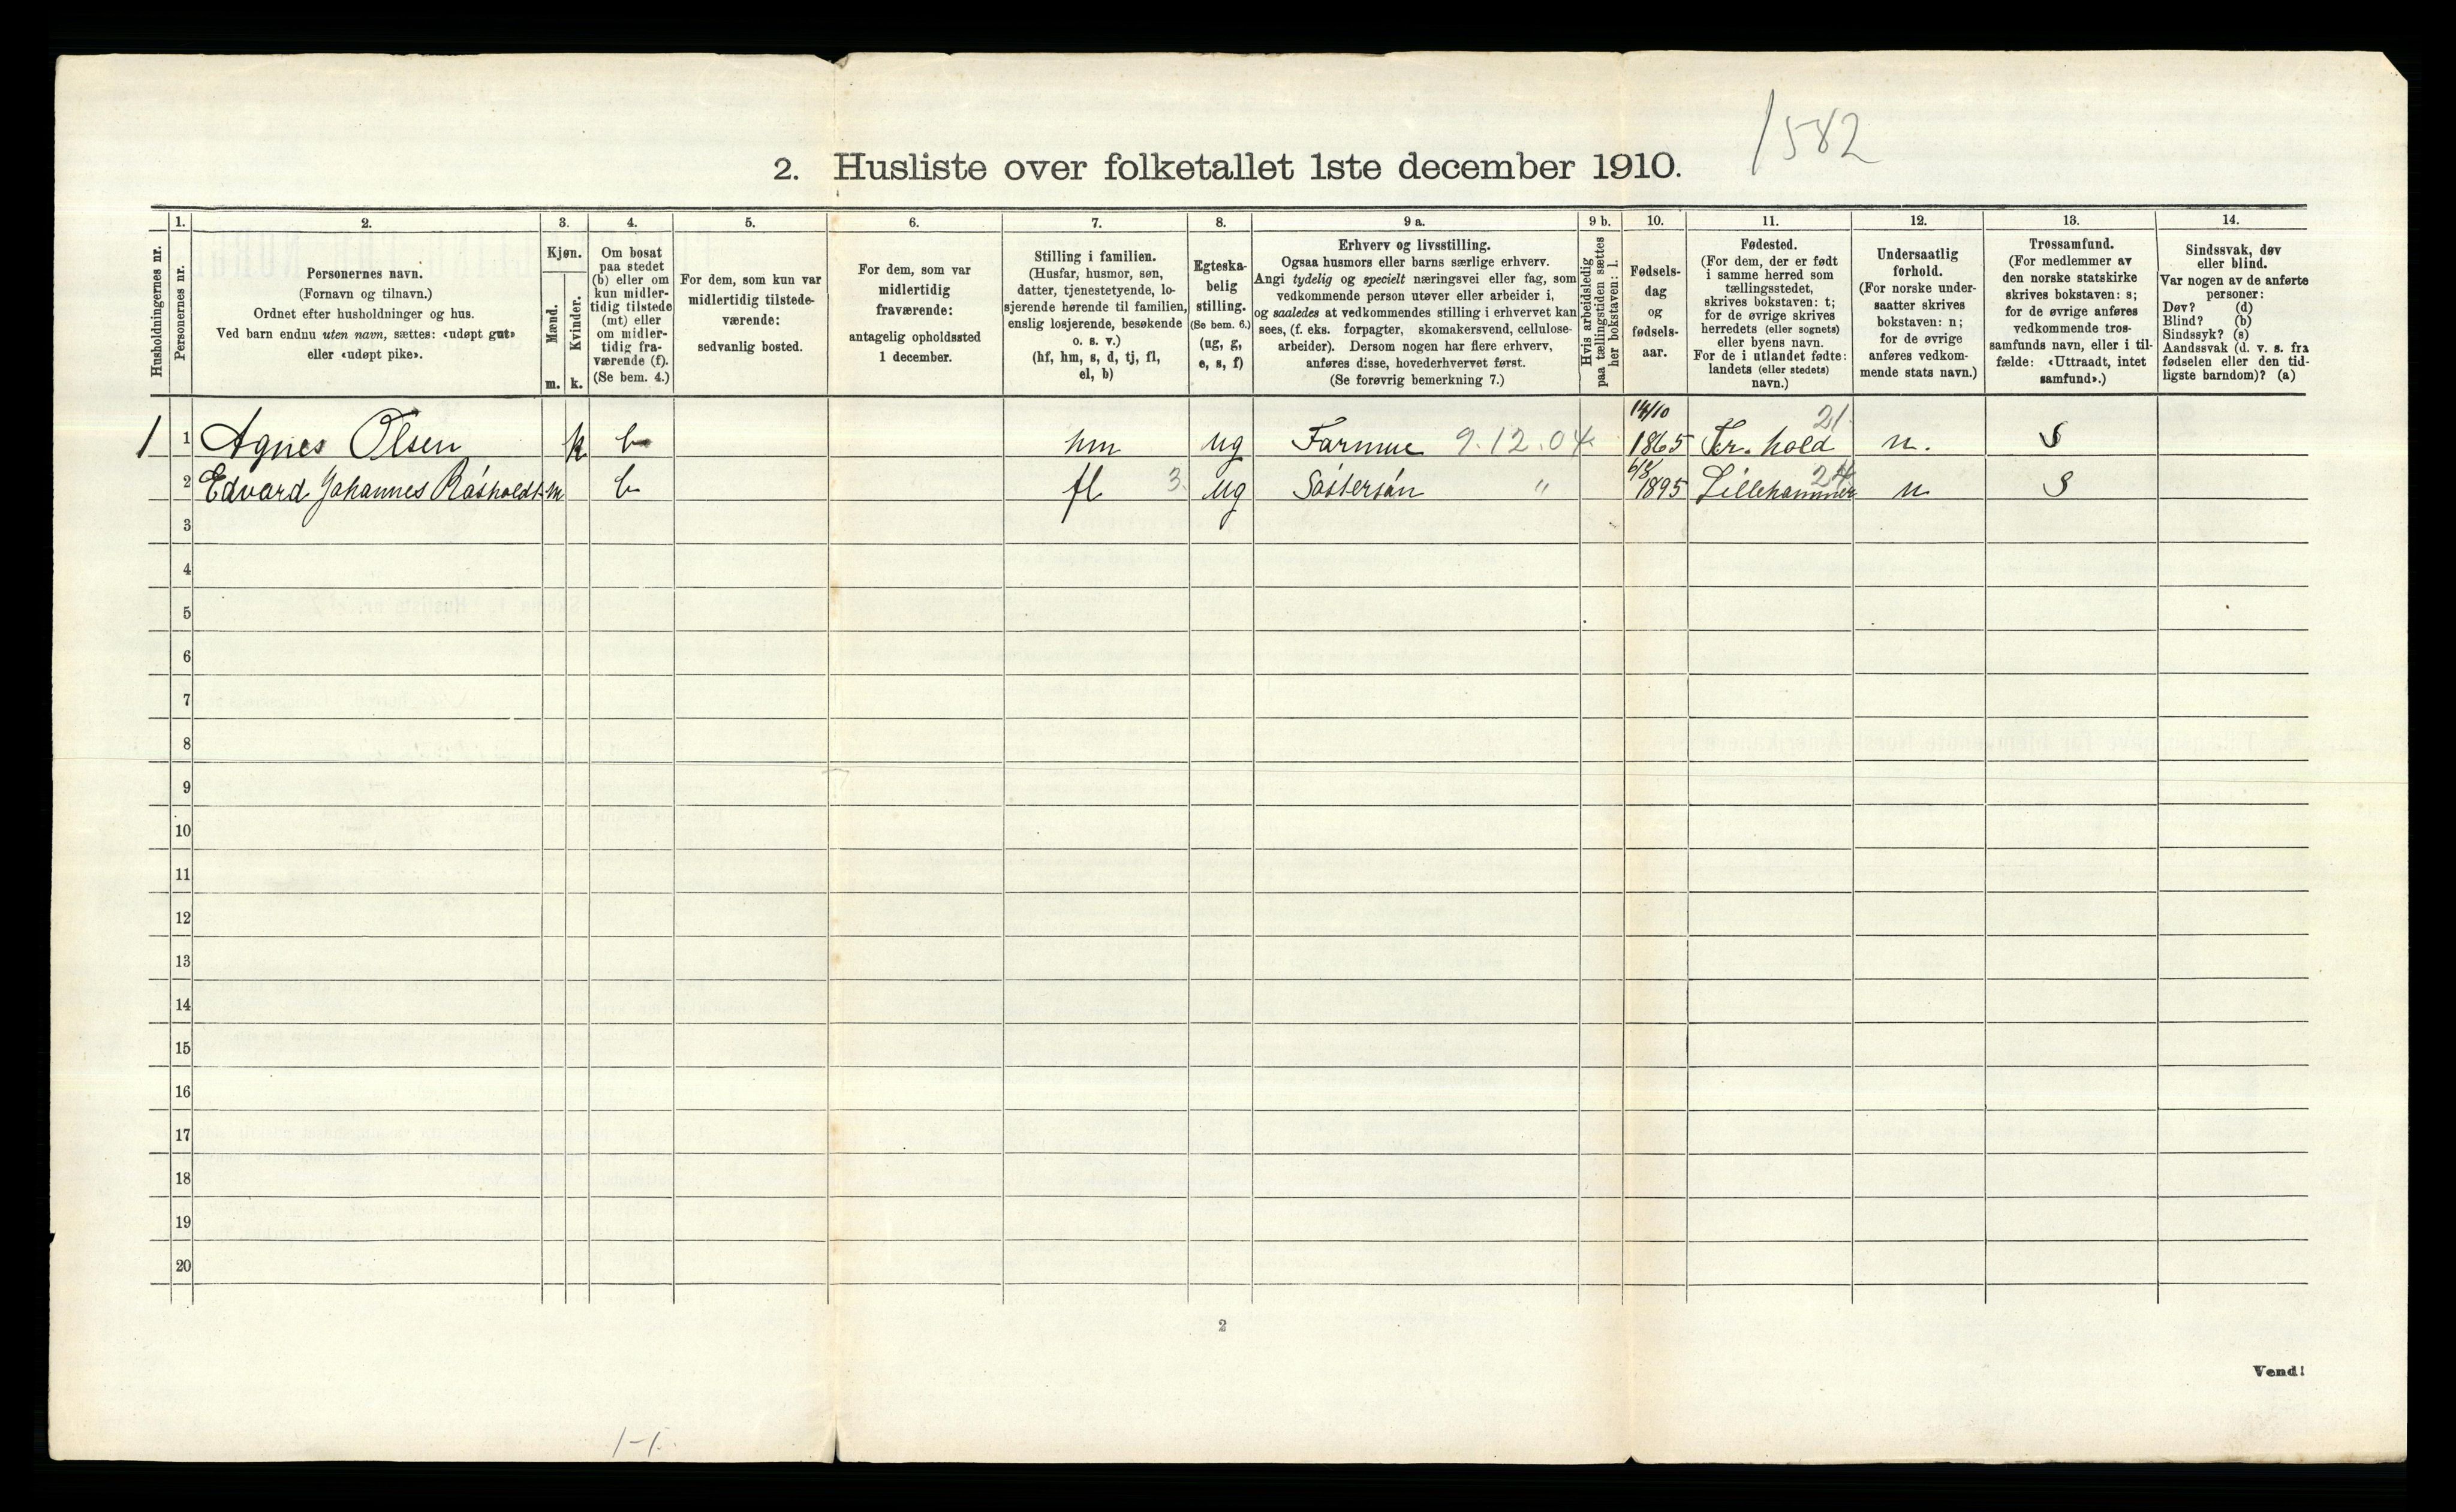 1582
2. Husliste over folketallet 1ste december 1910.
Husholdningernes nr.
1.
Personernes nr.
2.
Personernes navn.
(Fornavn og tilnavn.)
Ordnet efter husholdninger og hus.
Ved barn endnu uten navn, sættes: «udøpt gut»
eller «udøpt pike».
3.
Kjøn.
Mænd.
Kvinder.
m. k.
4.
Om bosat
paa stedet
(b) eller om
kun midler-
tidig tilstede
(mt) eller
om midler-
tidig fra-
værende (f).
(Se bem. 4.)
5.
For dem, som kun var
midlertidig tilstede-
værende:
sedvanlig bosted.
6.
For dem, som var
midlertidig
fraværende:
antagelig opholdssted
1 december.
7.
Stilling i familien.
(Husfar, husmor, søn,
datter, tjenestetyende, lo-
sjerende hørende til familien,
enslig losjerende, besøkende
o. s. v.)
(hf, hm, s, d, tj, fl,
el, b)
8.
Egteska-
belig
stilling.
(Se bem. 6.)
(ug, g,
e, s, f)
9 a.
Erhverv og livsstilling.
Ogsaa husmors eller barns særlige erhverv.
Angi tydelig og specielt næringsvei eller fag, som
vedkommende person utøver eller arbeider i,
og saaledes at vedkommendes stilling i erhvervet kan
sees, (f. eks. forpagter, skomakersvend, cellulose-
arbeider). Dersom nogen har flere erhverv,
anføres disse, hovederhvervet først.
(Se forøvrig bemerkning 7.)
9 b.
Hvis arbeidsledig
paa tællingstiden sættes
her bokstaven: l.
10.
Fødsels-
dag
og
fødsels-
aar.
11.
Fødested.
(For dem, der er født
i samme herred som
tællingsstedet,
skrives bokstaven: t;
for de øvrige skrives
herredets (eller sognets)
eller byens navn.
For de i utlandet fødte:
landets (eller stedets)
navn.)
12.
Undersaatlig
forhold.
(For norske under-
saatter skrives
bokstaven: n;
for de øvrige
anføres vedkom-
mende stats navn.)
13.
Trossamfund.
(For medlemmer av
den norske statskirke
skrives bokstaven: s;
for de øvrige anføres
vedkommende tros-
samfunds navn, eller i til-
fælde: «Uttraadt, intet
samfund».)
14.
Sindssvak, døv
eller blind.
Var nogen av de anførte
personer:
Døv? (d)
Blind? (b)
Sindssyk? (s)
Aandssvak (d. v. s. fra
fødselen eller den tid-
ligste barndom)? (a)
1 1 Agnes Olsen k b hm ug 9.12.04 14/10 1865 Kr. hold 21 n. S
2 Edvard Johannes m b fl 3. ug Søstersøn " 6/8 1895 Lillehammer 24 n S
3
4
5
6
7
8
9
10
11
12
13
14
15
16
17
18
19
20
2
Vend!
1-1.